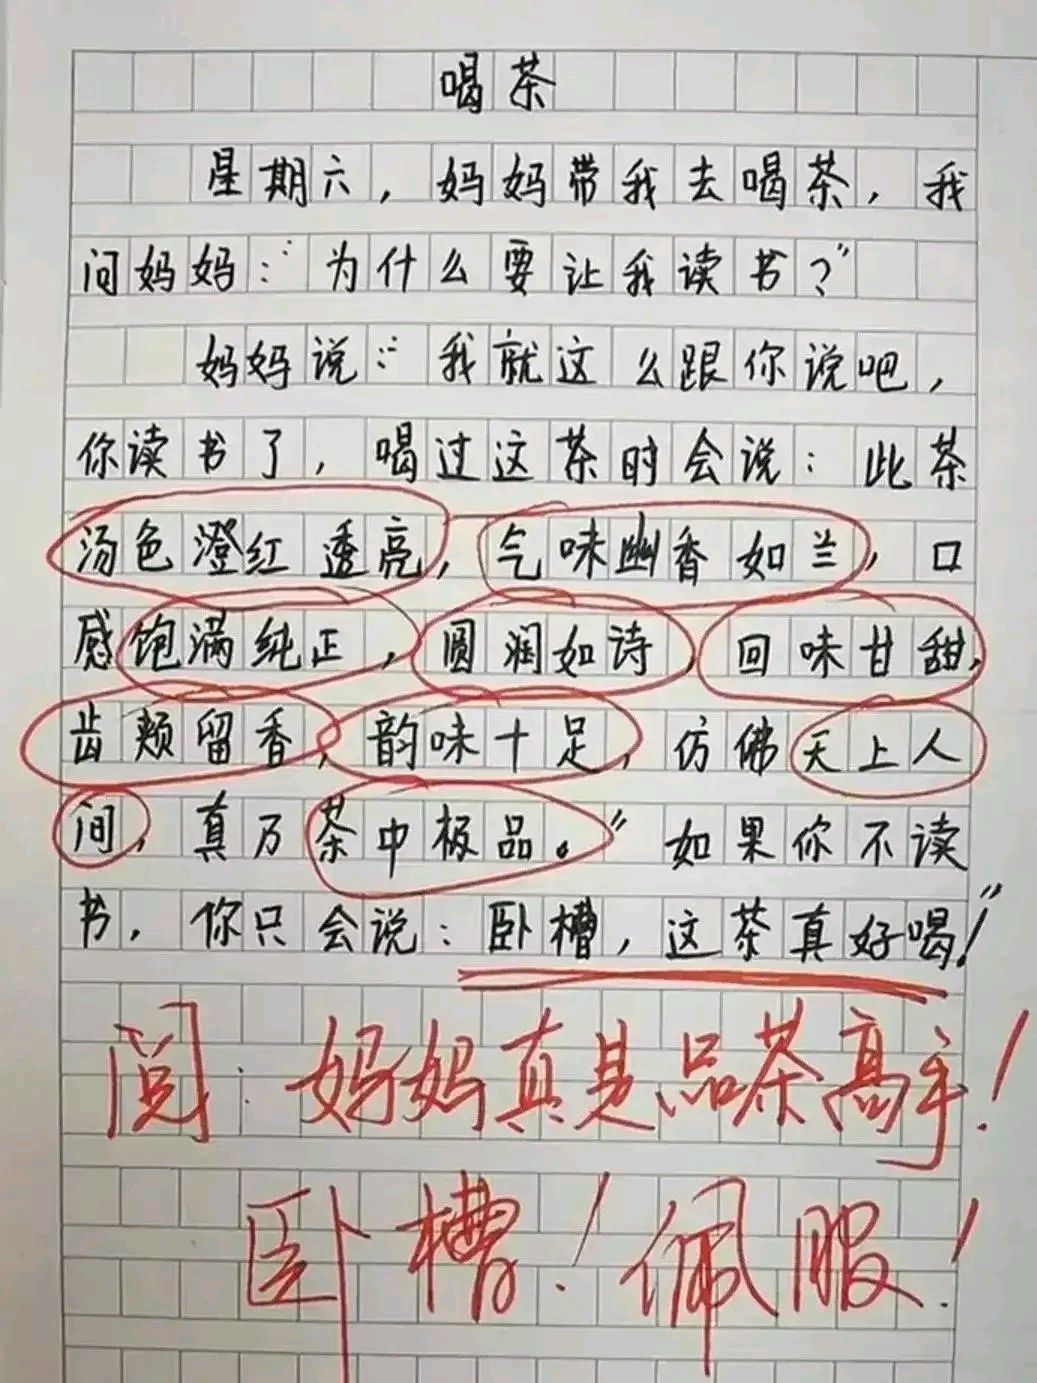 喝茶
星期六，妈妈带我去喝茶，我
问妈妈：“为什么要让我读书？”
妈妈说：“我就这么跟你说吧，
你读书了，喝过这茶时会说：此茶
汤色澄红透亮，气味幽香如兰，口
感饱满纯正，圆润如诗，回味甘甜，
齿颊留香，韵味十足，仿佛天上人
间，真乃茶中极品。”如果你不读
书，你只会说：卧槽，这茶真好喝！”
阅：妈妈真是品茶高手！
卧槽！佩服！